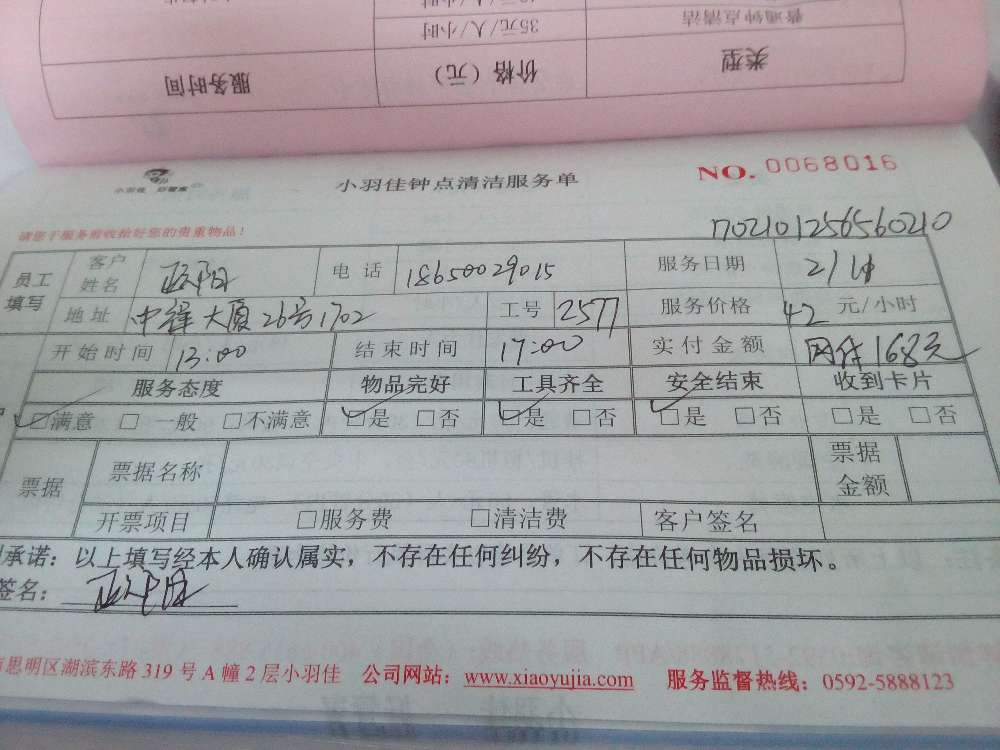 普通钟点清洁 35元/人/小时
类型 价格（元） 服务时间
小羽佳 好管家
小羽佳钟点清洁服务单 NO. 0068016
请您于服务前收拾好您的贵重物品！ 1702101256560210
员工填写 客户姓名 电话 18650029015 服务日期
地址 大厦26号1702 工号 2577 服务价格 42 元/小时
开始时间 13:00 结束时间 17:00 实付金额 168元
服务态度 物品完好 工具齐全 安全结束 收到卡片
☑满意 □一般 □不满意 ☑是 □否 ☑是 □否 ☑是 □否 □是 □否
票据 票据名称 票据金额
开票项目 □服务费 □清洁费 客户签名
承诺：以上填写经本人确认属实，不存在任何纠纷，不存在任何物品损坏。
签名：
思明区湖滨东路 319 号 A 幢 2 层小羽佳 公司网站：www.xiaoyujia.com 服务监督热线：0592-5888123